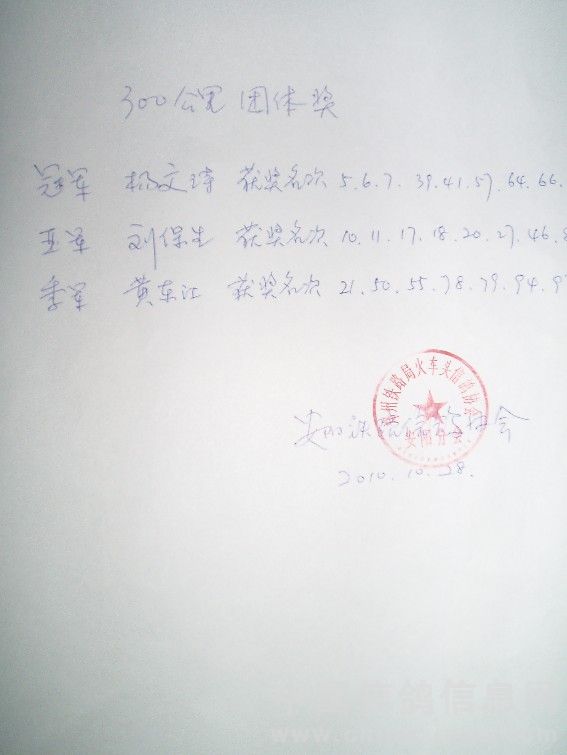 300公里 团体奖
冠军 杨文琦 获奖名次 5.6.7.39.41.57.64.66.
亚军 刘保生 获奖名次 10.11.17.18.20.27.46.8
季军 黄东江 获奖名次 21.50.55.78.79.94.9
郑州铁路局火车头信鸽协会
安阳分会
安阳铁路信鸽协会
2010.10.28.
鸽信息
www.